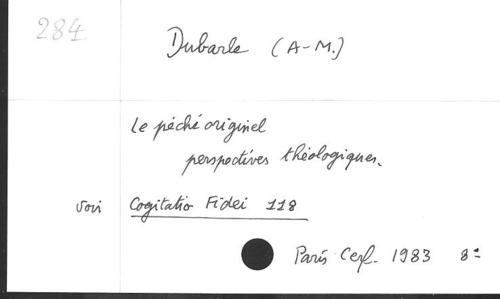 284
Dubarle (A-M.)
Le péché originel
perspectives théologiques.
voir Cogitatio Fidei 118
Paris Cerf. 1983 8º